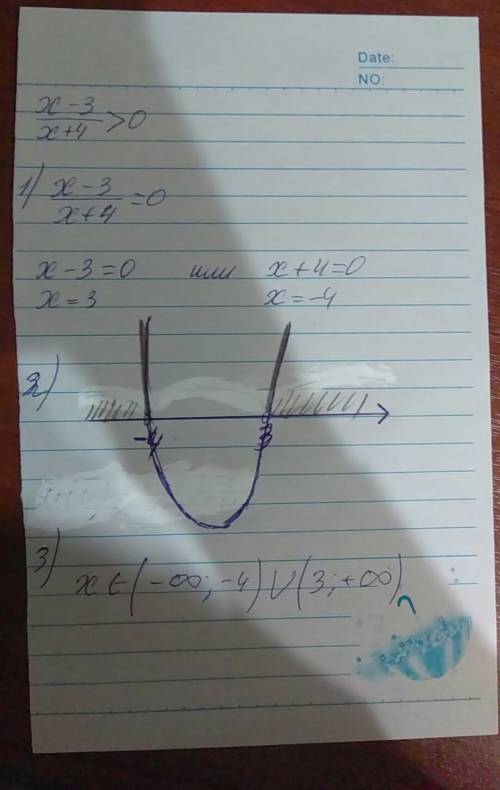 Date:
NO:
x-3/x+4 >0
1) x-3/x+4 =0
x-3=0 или x+4=0
x=3 x=-4
2)
-4 3
3)
x∈(-∞;-4)∪(3;+∞)